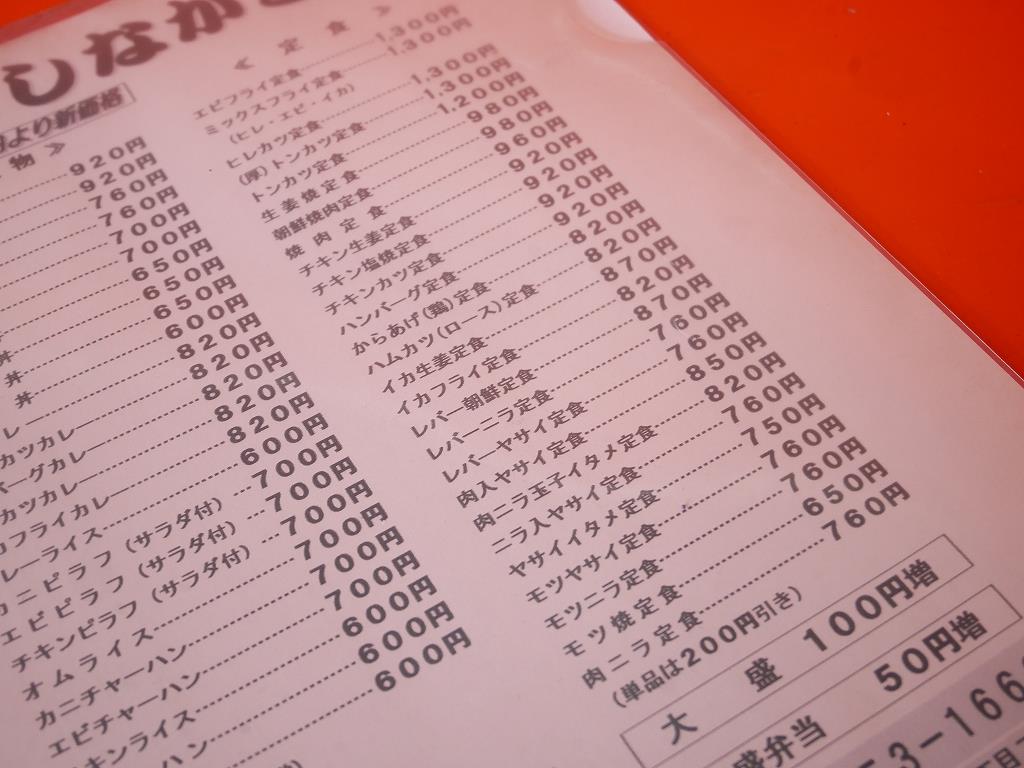 しなが
より新価格
物 ≫
920円
920円
760円
760円
700円
650円
650円
丼 600円
丼 820円
丼
レー 820円
カツカレー 820円
バーグカレー 820円
カツカレー 820円
フライカレー
レーライス 600円
カニピラフ (サラダ付) 700円
エビピラフ (サラダ付) 700円
チキンピラフ (サラダ付) 700円
オムライス 700円
カニチャーハン 700円
エビチャーハン 600円
キンライス 600円
ハン 600円
≪ 定食 ≫
エビフライ定食 1,300円
ミックスフライ定食 1,300円
(ヒレ・エビ・イカ)
ヒレカツ定食 1,300円
(厚)トンカツ定食 1,300円
トンカツ定食 1,200円
生姜焼定食 980円
朝鮮焼肉定食 980円
焼肉定食 960円
チキン生姜定食 920円
チキン塩焼定食 920円
チキンカツ定食 920円
ハンバーグ定食 920円
からあげ(鶏)定食 820円
ハムカツ(ロース)定食 820円
イカ生姜定食 870円
イカフライ定食 820円
レバー朝鮮定食 870円
レバーニラ定食 760円
レバーヤサイ定食 760円
肉入ヤサイ定食 850円
肉ニラ玉子イタメ定食 820円
ニラ入ヤサイ定食 760円
ヤサイイタメ定食 750円
モツヤサイ定食 760円
モツニラ定食 760円
モツ焼定食 650円
肉ニラ定食 760円
(単品は200円引き)
大盛 100円増
盛弁当 50円増
3-166